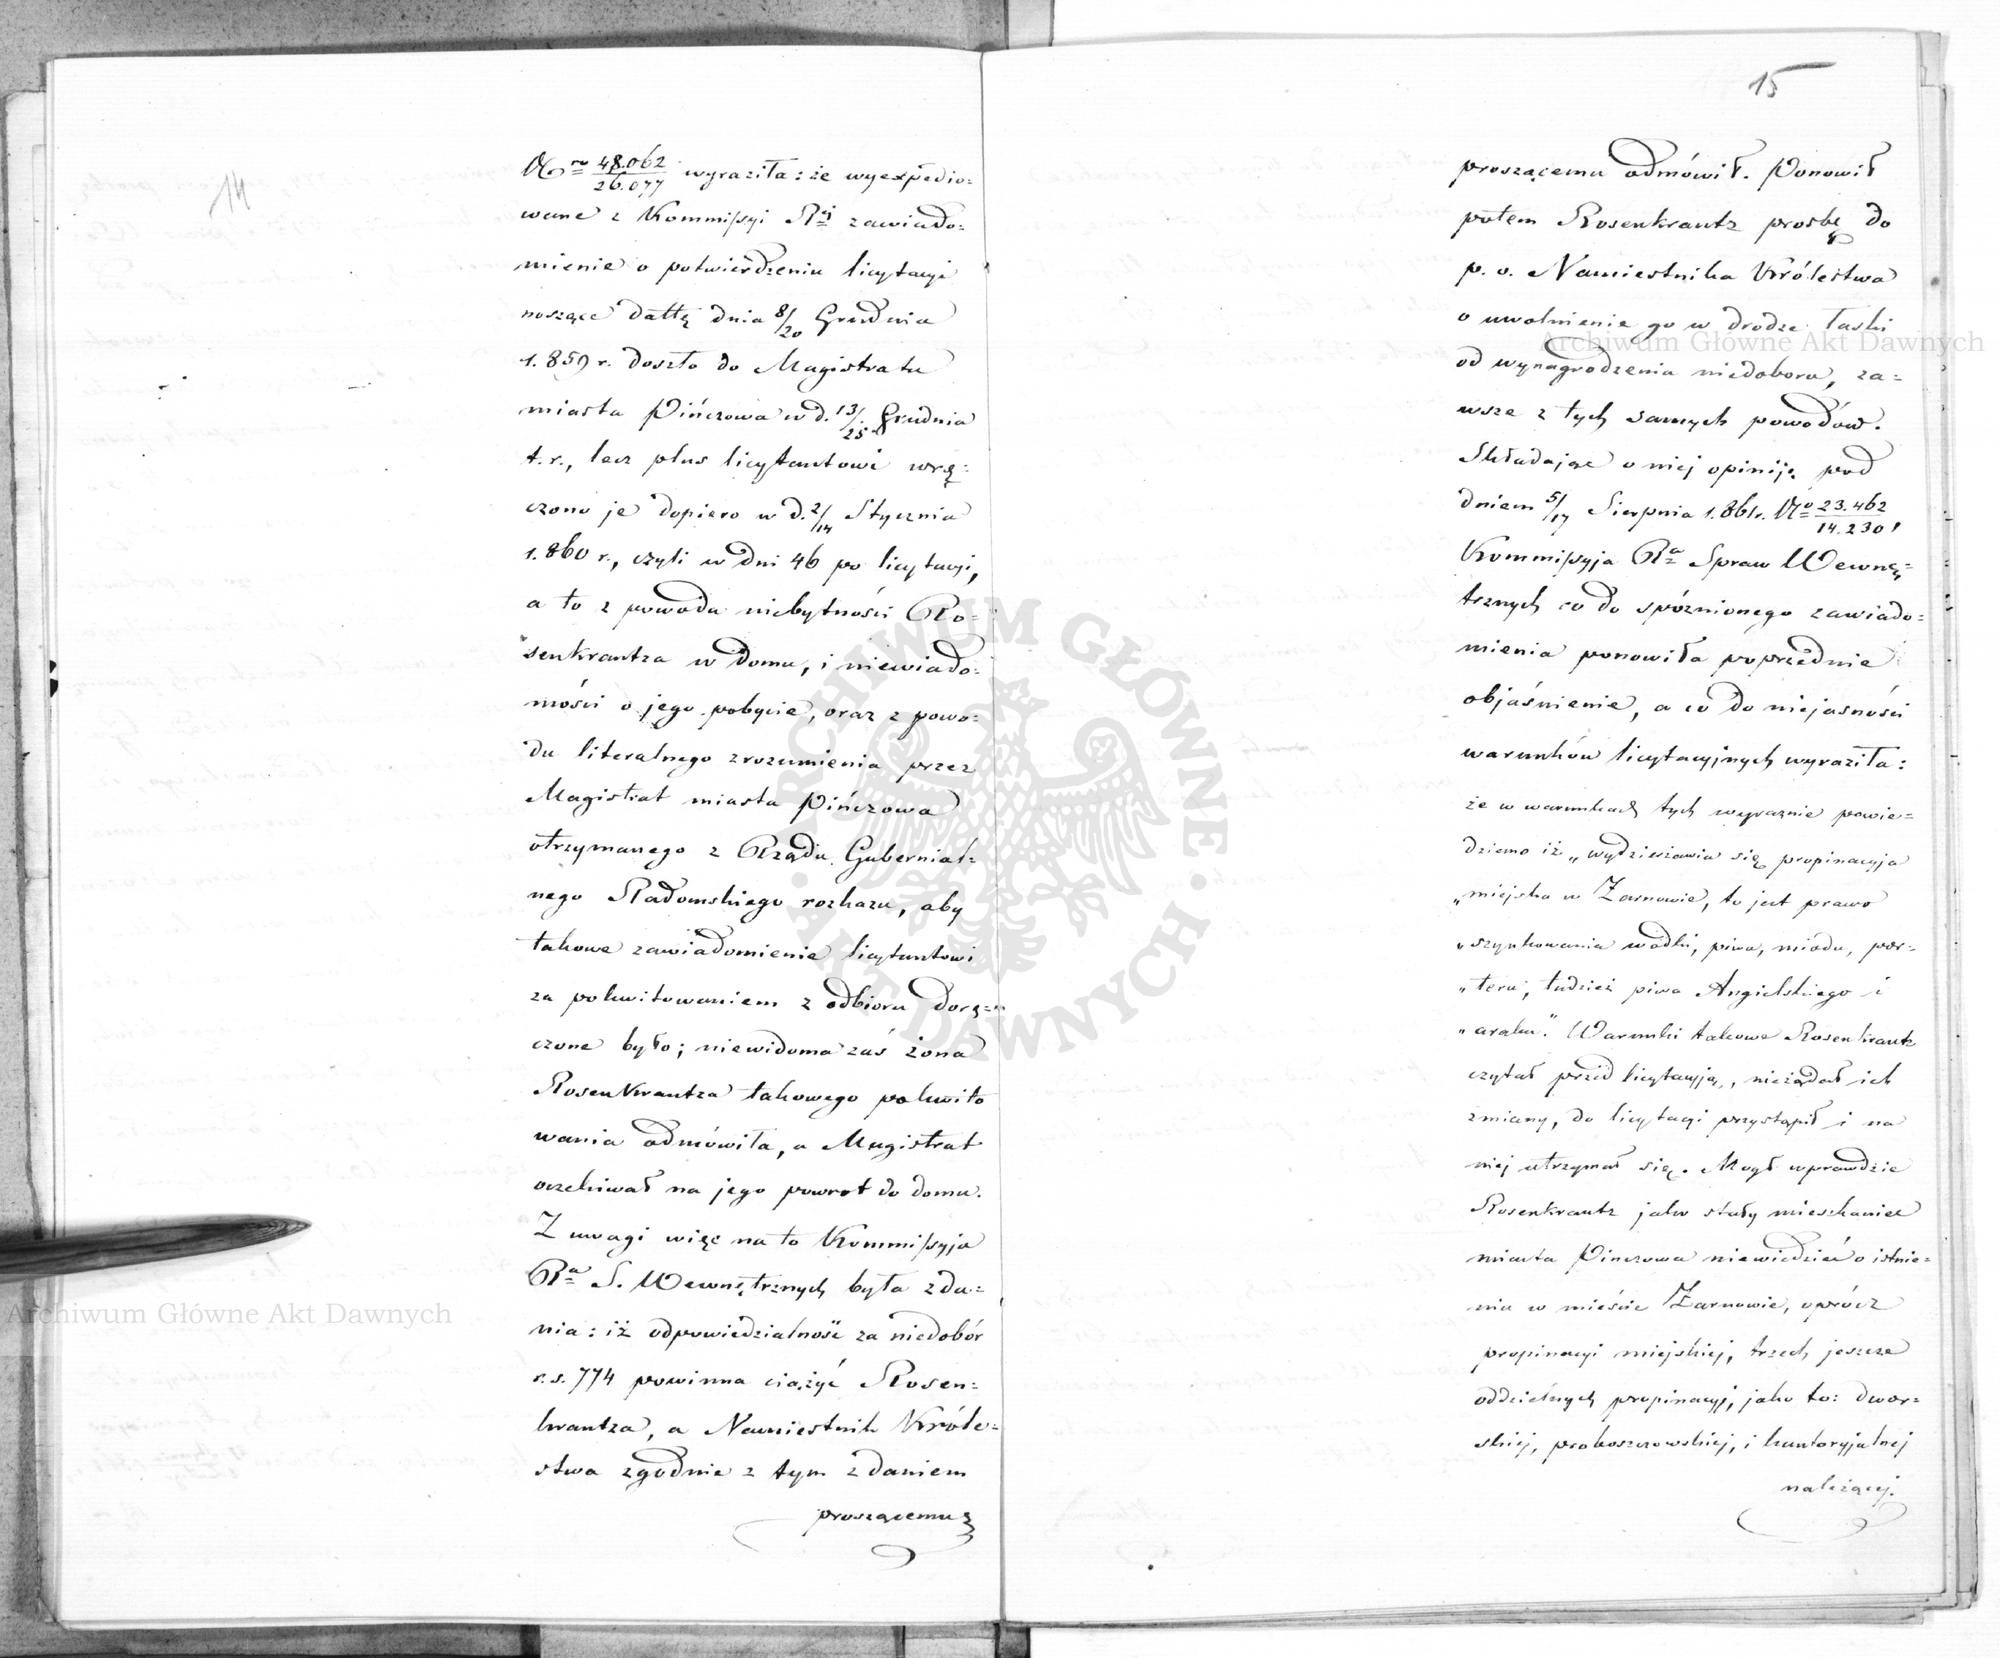 14
Nro 48.062/26.077 wyraziła: że wyexpedio-
wane z Kommissyi Rej zawiado-
mienie o potwierdzeniu licytacyi
noszące dattę dnia 8/20 Grudnia
1.859 r. doszło do Magistratu
miasta Pińczowa w d. 13/25 Grudnia
t.r., lecz plus licytantowi wrę-
czono je dopiero w d. 2/14 Stycznia
1.860 r., czyli w dni 46 po licytacyi,
a to z powodu niebytności Ro-
senkrantza w domu, i niewiado-
mości o jego pobycie, oraz z powo-
du literalnego zrozumienia przez
Magistrat miasta Pińczowa
otrzymanego z Rządu Gubernial-
nego Radomskiego rozkazu, aby
takowe zawiadomienie licytantowi
za pokwitowaniem z odbioru dorę-
czone było; niewidoma zaś żona
RosenKrantza takowego pokwito
wania odmówiła, a Magistrat
oczekiwał na jego powrot do domu.
Z uwagi więc na to Kommissyja
Ra S. Wewnętrznych była zda-
nia: iż odpowiedzialność za niedobór
r.s. 774 powinna ciążyć Rosen-
krantza, a Namiestnik Króle-
stwa zgodnie z tym zdaniem
proszącemu
15
proszącemu odmówił. Ponowił
potem Rosenkrantz prosbę do
p. o. Namiestnika Królestwa
o uwolnienie go w drodze łaski
od wynagrodzenia niedoboru, za-
wsze z tych samych powodów.
Składając o niej opiniję pod
dniem 5/17 Sierpnia 1.861r. No 23.462/14.230,
Kommissyja Ra Spraw Wewnę-
trznych co do spóznionego zawiado-
mienia ponowiła poprzednie
objaśnienie, a co do niejasności
warunków licytacyjnych wyraziła:
że w warunkach tych wyraznie powie-
dziano iż „wydzierżawia się propinacyja
„miejska w Żarnowie, to jest prawo
„szynkowania wódki, piwa, miodu, por-
„teru, tudzież piwa Angielskiego i
„araku." Warunki takowe Rosenkrantz
czytał przed licytacyją, nieżądał ich
zmiany, do licytacyi przystąpił i na
niej utrzymał się. Mógł wprawdzie
Rosenkrantz jako stały mieszkaniec
miasta Pinczowa niewiedzieć o istnie-
niu w mieście Żarnowie, oprócz
propinacyi miejskiej, trzech jeszcze
oddzielnych propinacyj, jako to: dwor-
skiej, proboszczowskiej, i kantoryjalnej
należącej.
Archiwum Główne Akt Dawnych
Archiwum Główne Akt Dawnych
ARCHIWUM GŁÓWNE
AKT DAWNYCH